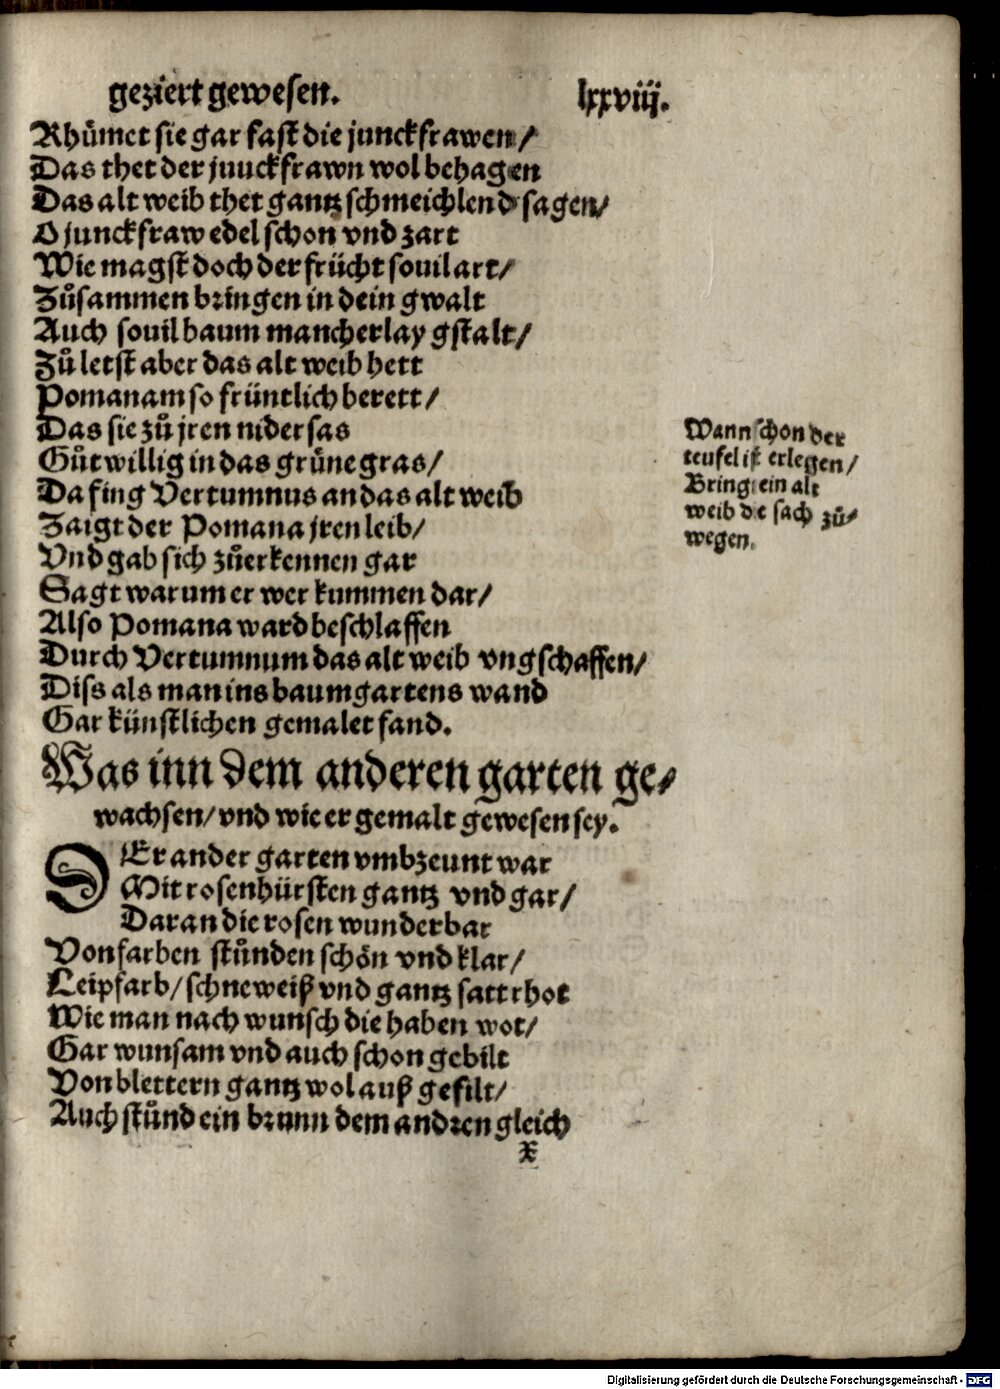 geziert gewesen. lxxviij.
Rhuͤmet sie gar fast die junckfrawen /
Das thet der juuckfrawn wol behagen
Das alt weib thet gantz schmeichlend sagen /
O junckfraw edel schon vnd zart
Wie magst doch der frücht souil art /
Zuͦsammen bringen in dein gwalt
Auch souil baum mancherlay gstalt /
Zuͦ letst aber das alt weib hett
Pomanam so früntlich berett /
Das sie zuͦ jren nider sas
Guͦtwillig in das gruͤne gras /
Da fing Vertumnus an das alt weib
Zaigt der Pomana jren leib /
Vnd gab sich zuͦerkennen gar
Sagt warum er wer kummen dar /
Also Pomana ward beschlaffen
Durch Vertumnum das alt weib vngschaffen /
Diss als man ins baumgartens wand
Gar künstlichen gemalet fand.
Wann schon der
teufel ist erlegen /
Bringt ein alt
weib die sach zuͦ⸗
wegen.
Was inn dem anderen garten ge⸗
wachsen / vnd wie er gemalt gewesen sey.
DEr ander garten vmbzeunt war
Mit rosenhürsten gantz vnd gar /
Daran die rosen wunderbar
Von farben stuͦnden schön vnd klar /
Leipfarb / schneweiß vnd gantz satt rhot
Wie man nach wunsch die haben wot /
Gar wunsam vnd auch schon gebilt
Von blettern gantz wol auß gefilt /
Auch stuͦnd ein brunn dem andren gleich
X
Digitalisierung gefördert durch die Deutsche Forschungsgemeinschaft - DFG